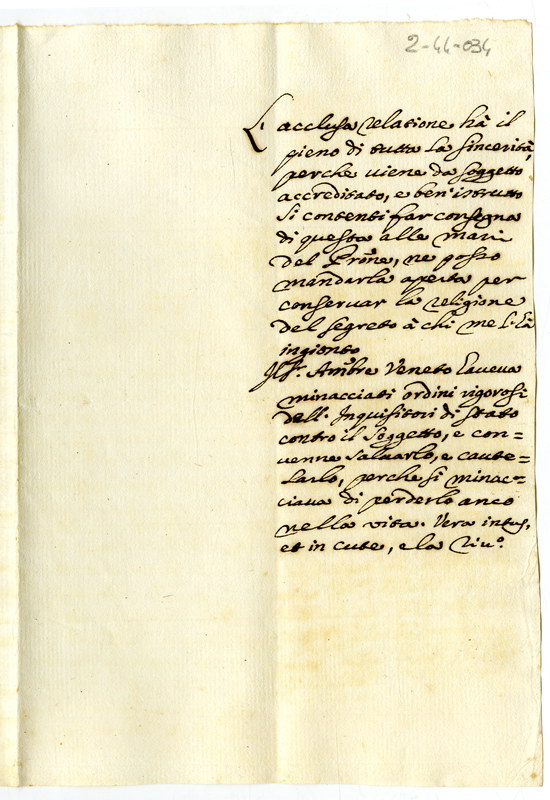 2-44-034
L'acclusa relatione hà il
pieno di tutta la sincerità,
perche viene da soggetto
accreditato, e ben'istrutto
Si contenti far consegna
di questa alle mani
del Prōne, ne posso
mandarla aperta per
conservar la religione
del segreto à chi me l'hà
ingionto
Il Sr. Ambre Veneto haveva
minacciati ordini rigorosi
dell'Inquisitori di Stato
contro il Soggetto, e con=
venne salvarlo, e caute=
larlo, perche si minac=
ciava di perderlo anco
nella vita. Vera intus,
et in cute, e la riuo.